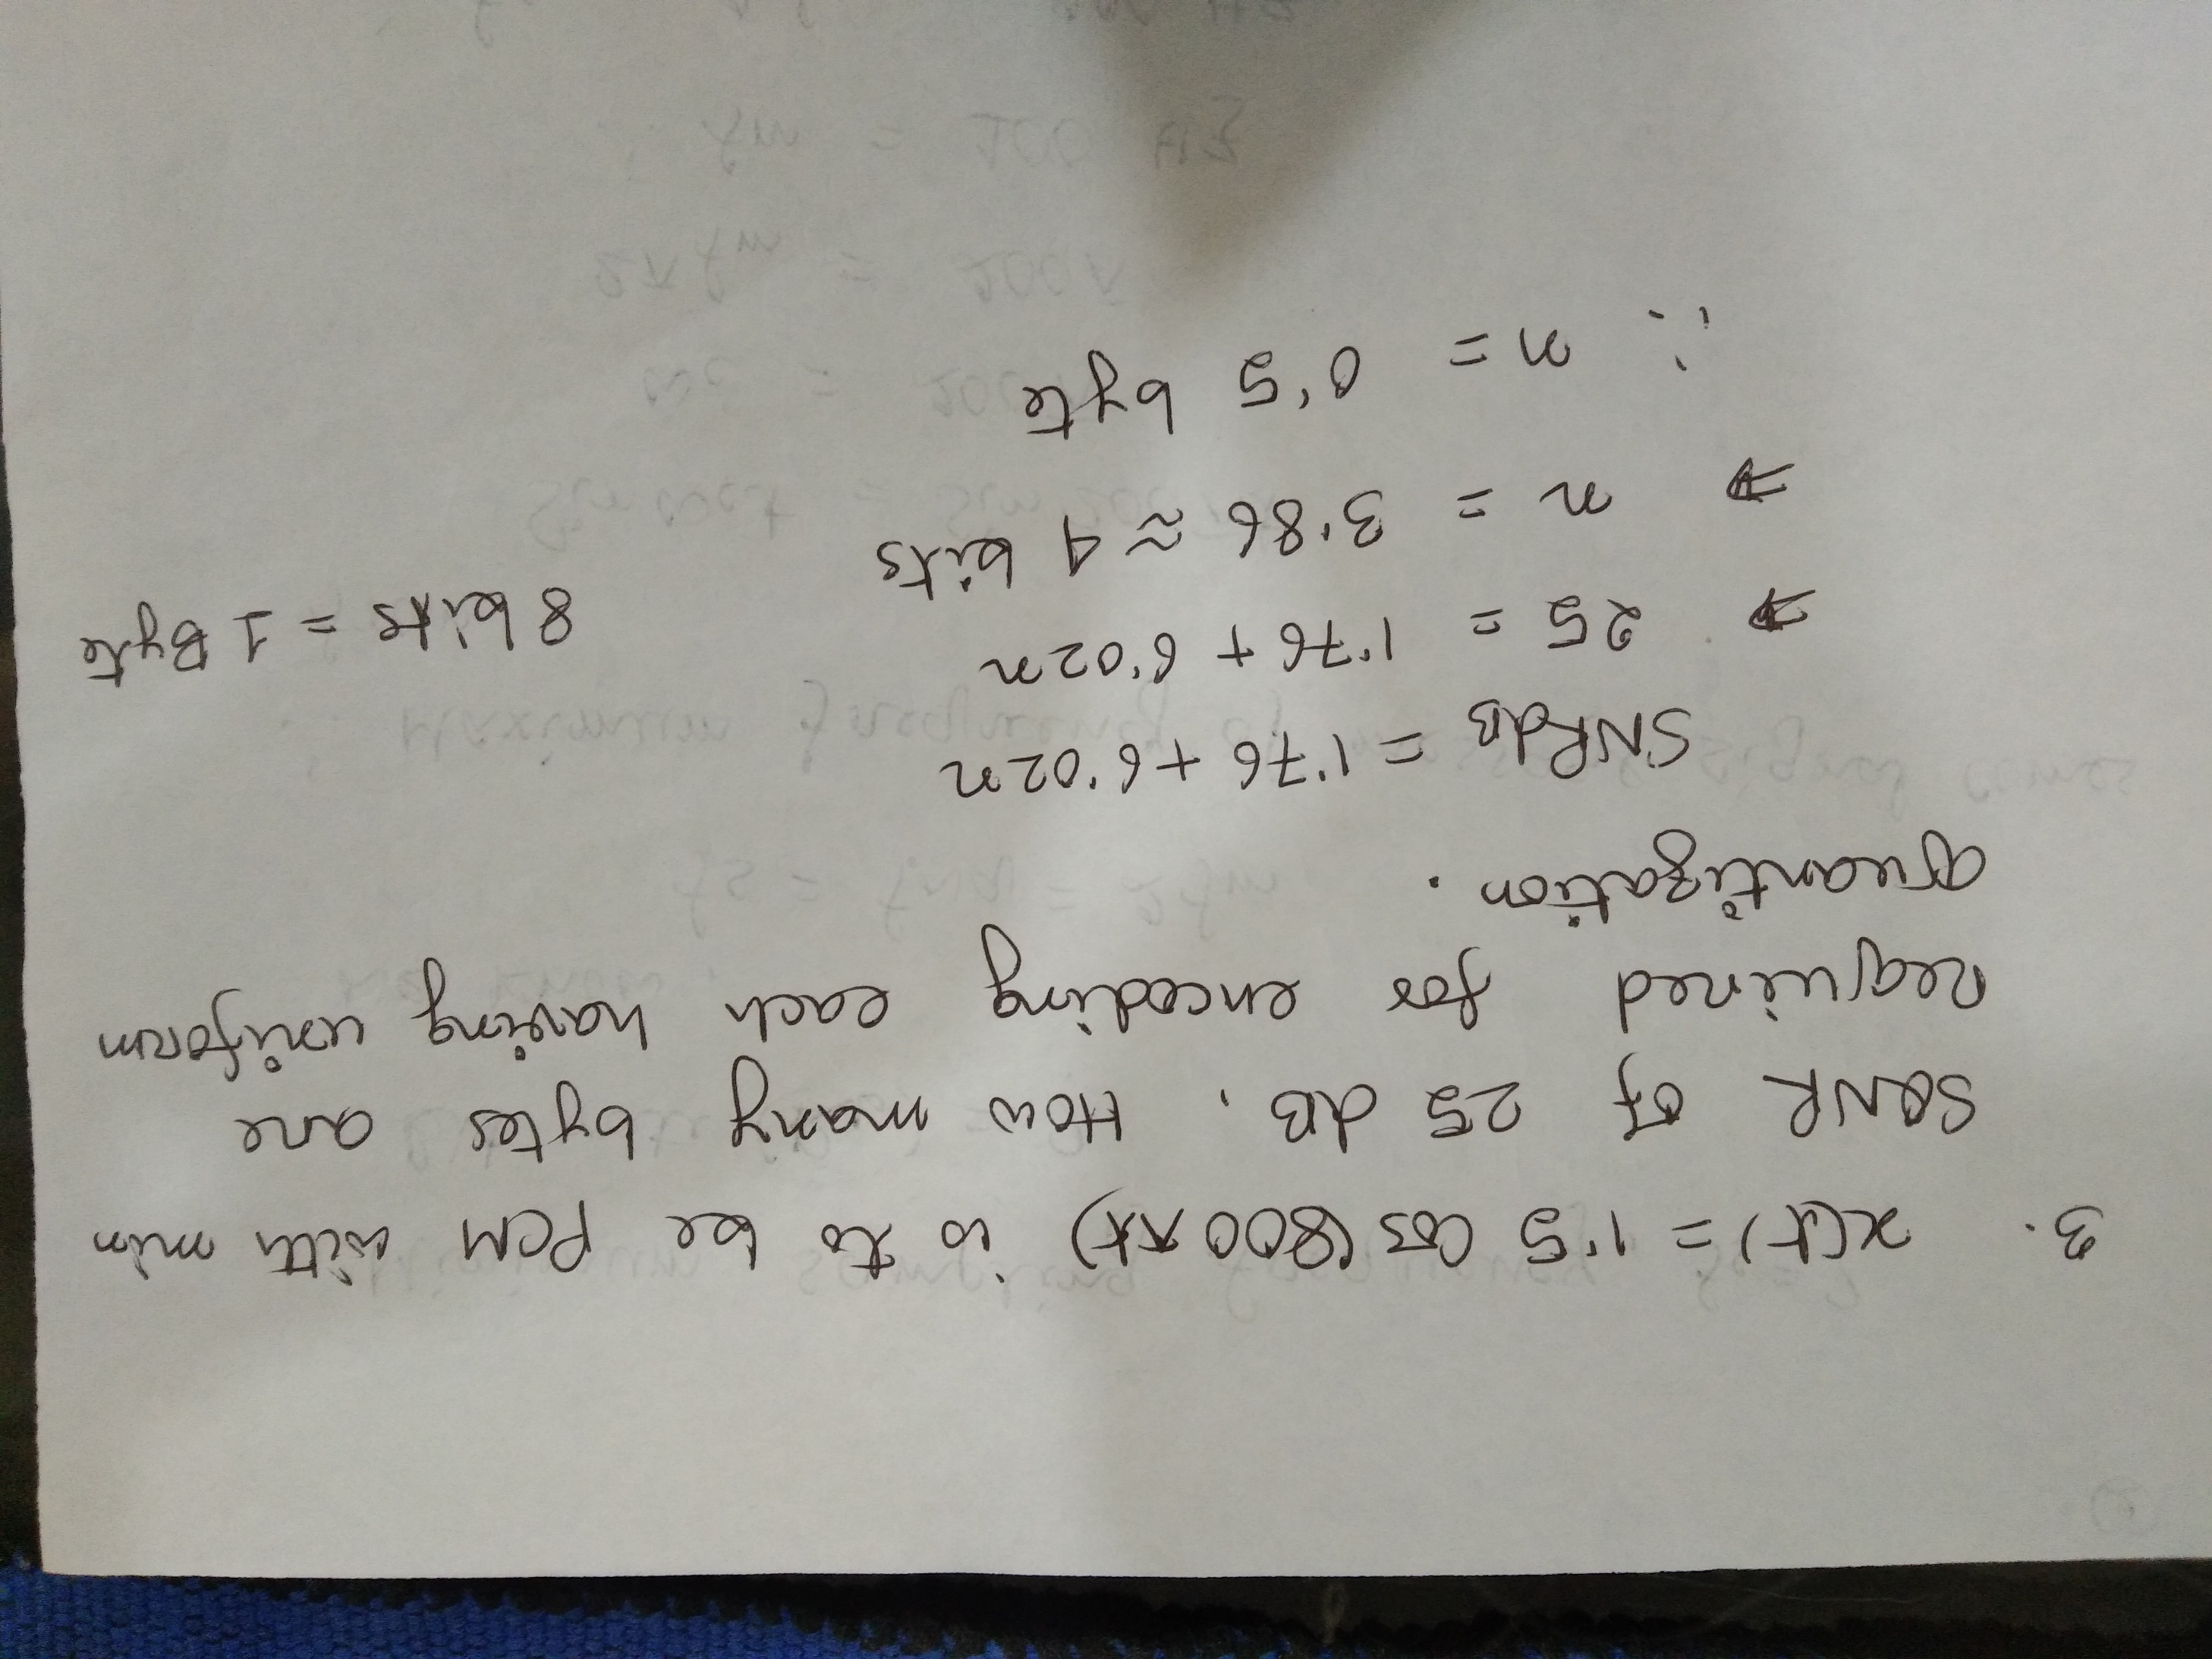 3. x(t) = 1.5 cos(800πt) is to be PCM with min
SQNR of 25 dB. How many bytes are
required for encoding each having uniform
quantization.
SNRdB = 1.76 + 6.02n
⇒ 25 = 1.76 + 6.02n
8 bits = 1 Byte
⇒ n = 3.86 ≈ 4 bits
∴ n = 0.5 byte